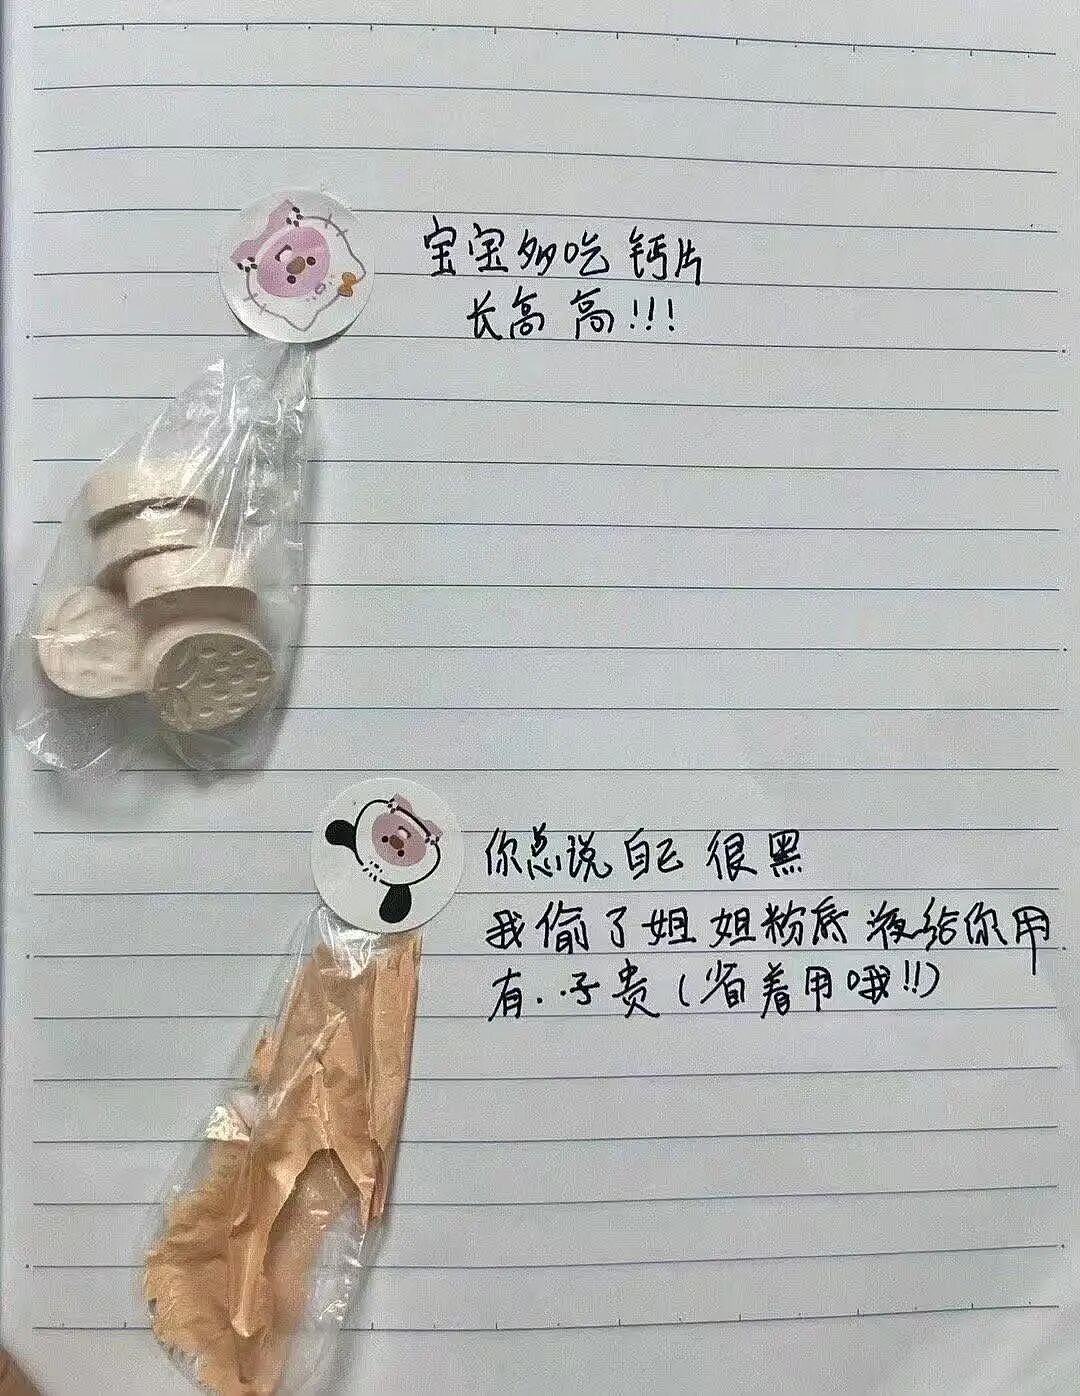 宝宝多吃钙片
长高高!!!
你总说自己很黑
我偷了姐姐粉底液给你用
有..子贵(省着用哦!!)